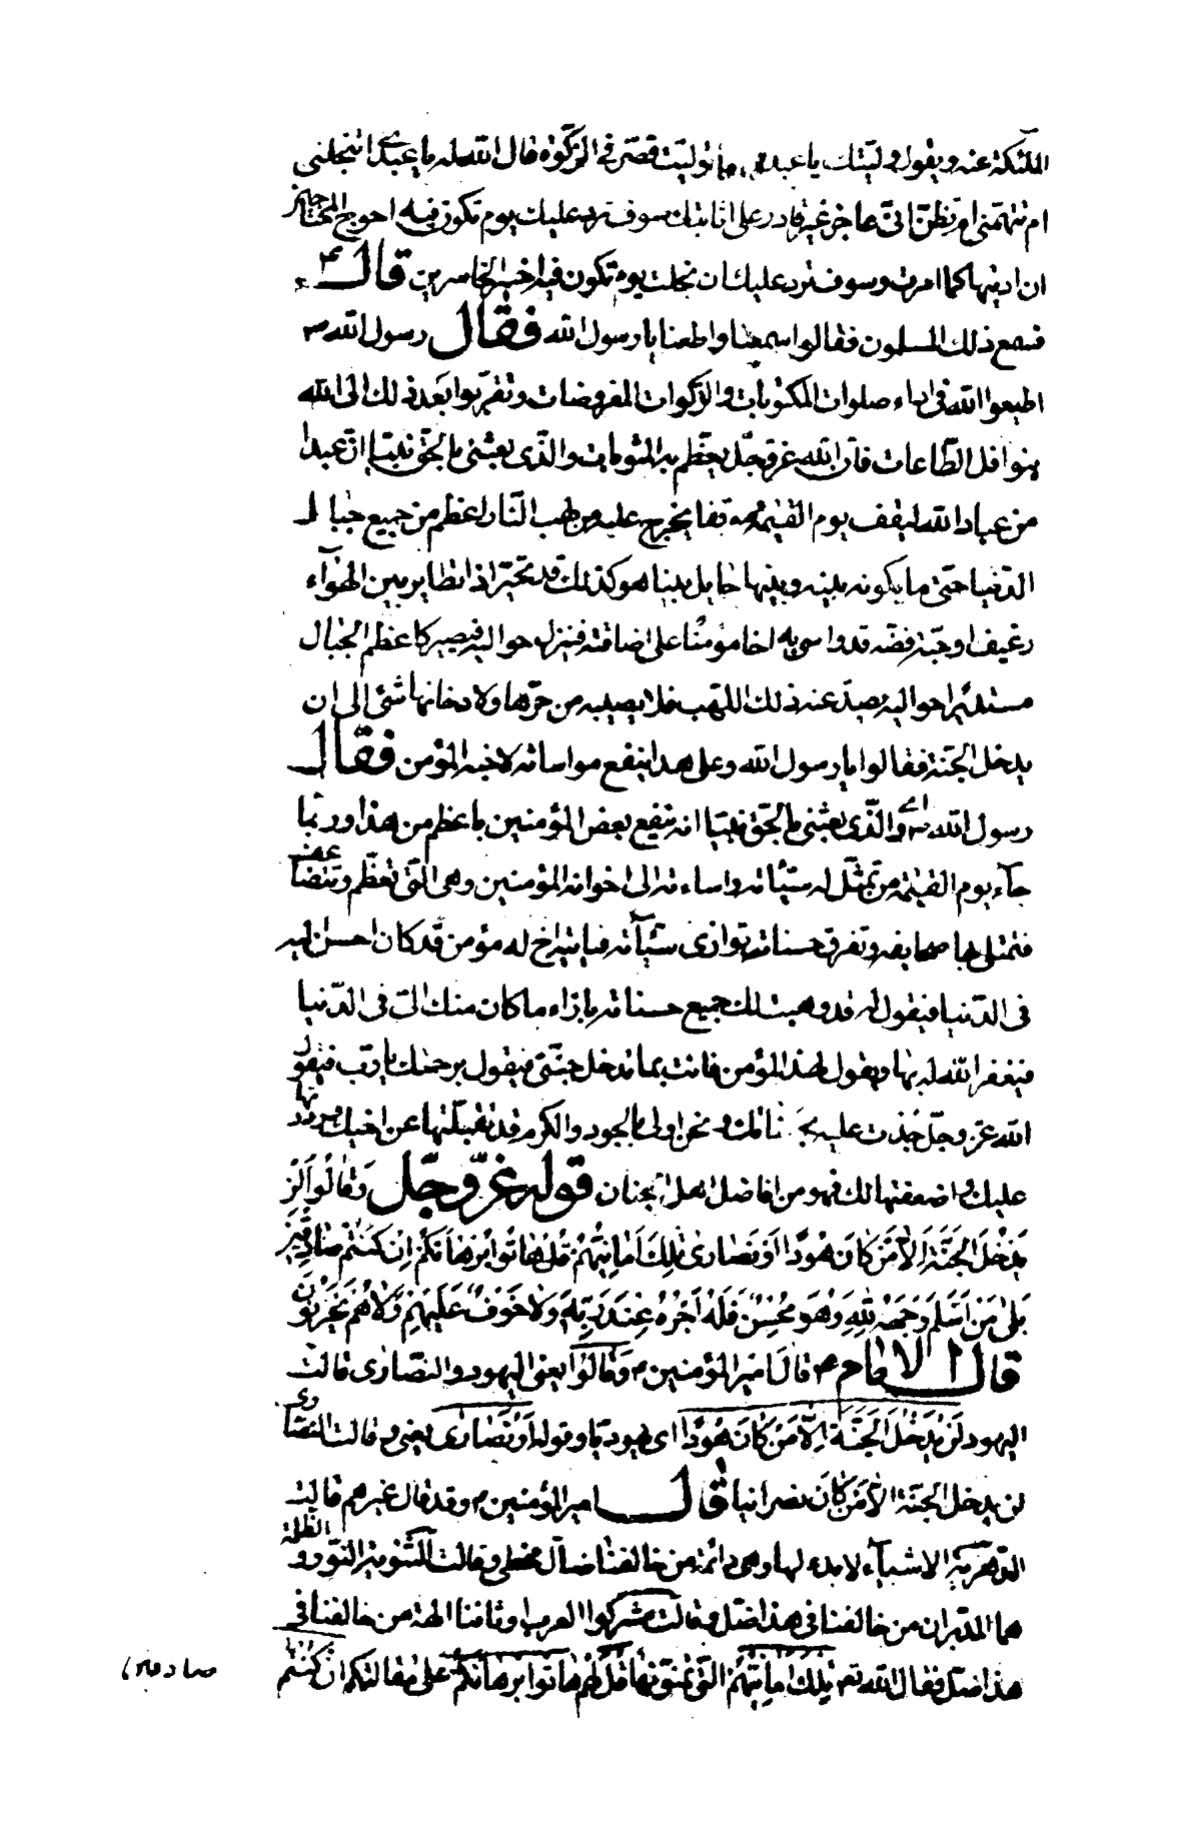 الملئكة عنه ويقول وليتك يا عبدى ما توليت قصر فى الزكوة قال الله له يا عبدى اتبخلنى
ام تتهمنى ام تظن انى عاجز غير قادر على اثابتك سوف يرد عليك يوم تكون فيه احوج المحتاجين
ان اديتها كما امرت وسوف ترد عليك ان بخلت يوم تكون فيه اخسر الخاسرين قال ع
فسمع ذلك المسلمون فقالوا سمعنا واطعنا يا رسول الله فقال رسول الله ص
اطيعوا الله فى اداء صلوات المكتوبات والزكوات المفروضات وتقربوا بعد ذلك الى الله
بنوافل الطاعات فان الله عز وجل يعظم به المثوبات والذى بعثنى بالحق نبيا ان عبدا
من عباد الله ليقف يوم القيمة موقفا يخرج عليه من لهب النار اعظم من جميع جبال
الدنيا حتى ما يكون بينه وبينها حايل بينا هو كذلك قد تحير اذ تطاير بين الهوآء
رغيف او حبة فضه قد واسى به اخا مؤمنا على اضافته فنزل حواليه فيصير كاعظم الجبال
مستديرا حواليه يصد عنه ذلك اللهب فلا يصيبه من حرها ولا دخانها شئ الى ان
يدخل الجنة فقالوا يا رسول الله وعلى هذا ينفع مواساته لاخيه المؤمن فقال
رسول الله ص اى والذى بعثنى بالحق نبيا انه ينفع بعض المؤمنين باعظم من هذا وربما
جآء يوم القيمة من تمثل له سيئاته واساءته الى اخوانه المؤمنين وهى التى تعظم وتتضاعف
فتمتلى بها صحايفه وتفرق حسناته توازى سيئآته فياتيه اخ له مؤمن قد كان احسن اليه
فى الدنيا فيقول له قد وهبت لك جميع حسناتى بازاء ما كان منك الى فى الدنيا
فيغفر الله له بها ويقول لهذا المؤمن فانت بما تدخل جنتى فيقول برحمتك يا رب فيقول
الله عز وجل جدت عليه بحسناتك ونحن اولى بالجود والكرم قد تقبلتها عن اخيك ورددتها
عليك واضعفتها لك فهو من افاضل اهل الجنان قوله عز وجل وَقالُوا لَنْ
يَدْخُلَ الجَنَّةَ اِلاّ مَنْ كانَ هُودًا اَوْ نَصارى تِلْكَ اَمانِيُّهُمْ قُلْ هاتُوا بُرْهانَكُمْ اِنْ كُنْتُمْ صادِقِينَ
بَلى مَنْ اَسْلَمَ وَجْهَهُ لِلّهِ وَهُوَ مُحْسِنٌ فَلَهُ اَجْرُهُ عِنْدَ رَبِّهِ وَلا خَوْفٌ عَلَيْهِمْ وَلا هُمْ يَحْزَنُونَ
قال الامام ع قالَ امير المؤمنين ع وَقالُوا يعنى اليهود والنصارى قالت
اليهود لَنْ يَدْخُلَ الْجَنَّةَ اِلاّ مَنْ كانَ هُودًا اى يهوديا وقوله اَوْ نَصارى يعنى وقالت النصارى
لن يدخل الجنة الا من كان نصرانيا قال امير المؤمنين ع وقد قال غيرهم قالت
الدهرية الاشيآء لا بدء لها وهى دائمة من خالفنا ضال مخطئ وقالت الثنوية النور والظلمة
هما المدبران من خالفنا فى هذا ضل وقالت مشركوا العرب اوثاننا الهة من خالفنا فى
هذا ضل فقال الله تع تِلْكَ اَمانِيُّهُمْ التى يتمنونها قُلْ لهم هاتُوا بُرْهانَكُمْ على مقالتكم اِنْ كُنْتُمْ
صادقين